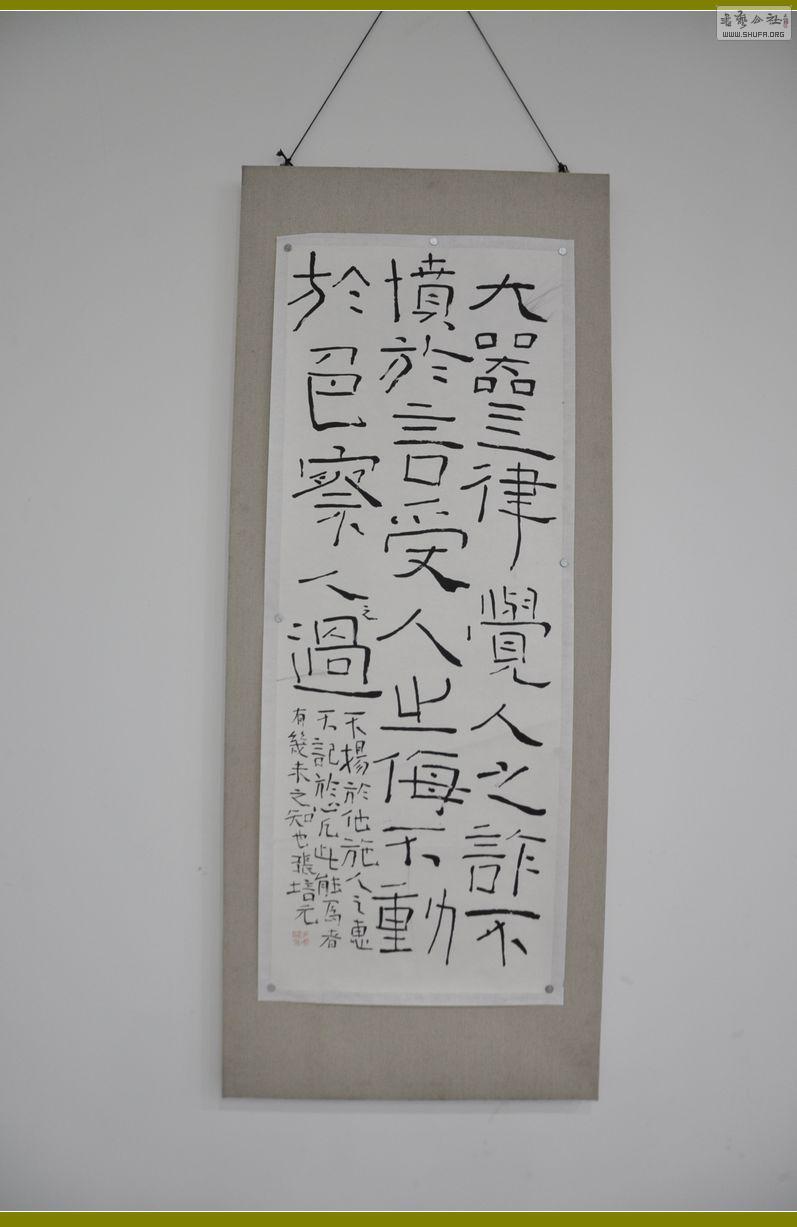 大器三律覺人之詐不
憤於言受人之侮不動
於色察人之過
不揚於他施人之惠
不記於心凡此能爲者
有幾未之知也張培元
書藝公社
WWW.SHUFA.ORG